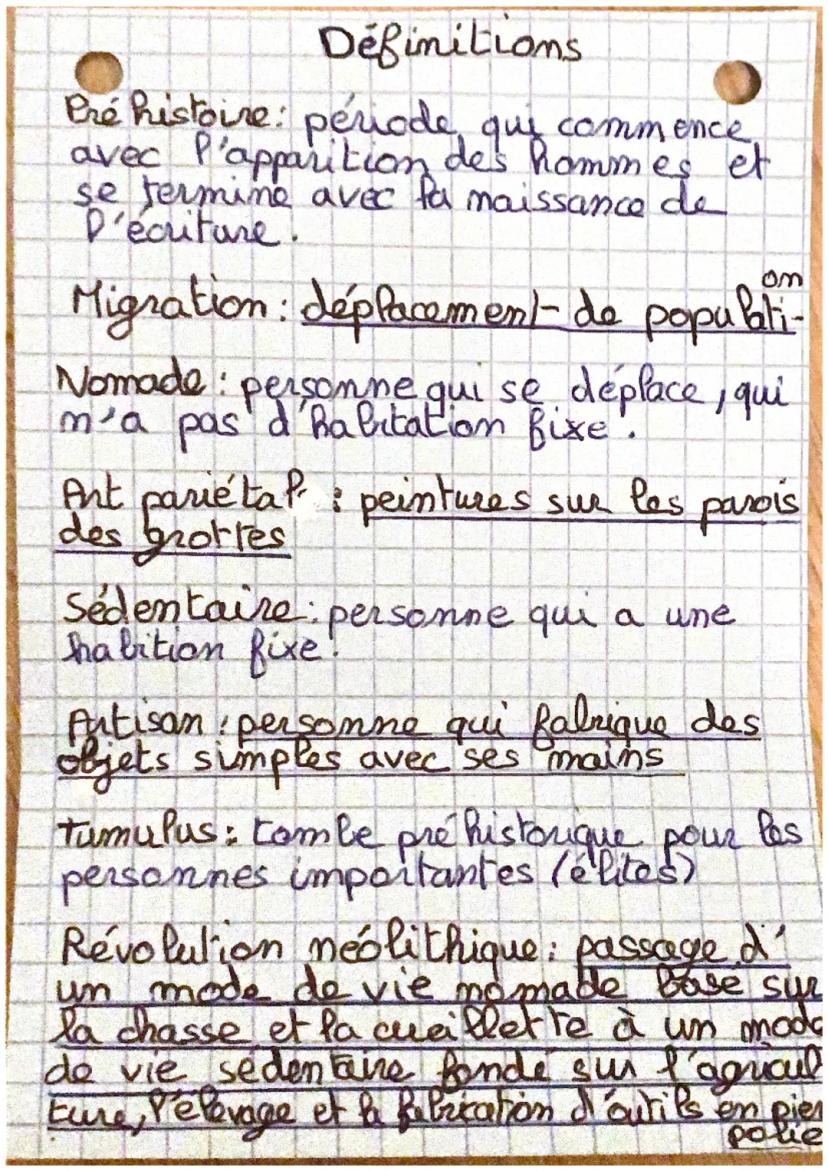 Définitions
Préhistoire : période qui commence
avec l'apparition des hommes et
se termine avec la naissance de
l'écriture.
Migration : déplacement de populati-
on
Nomade : personne qui se déplace, qui
n'a pas d'habitation fixe.
Art pariétal : peintures sur les parois
des grottes
Sédentaire : personne qui a une
habition fixe.
Artisan : personne qui fabrique des
objets simples avec ses mains
Tumulus : tombe préhistorique pour les
personnes importantes (élites)
Révolution néolithique : passage d'
un mode de vie nomade basé sur
la chasse et la cueillette à un mode
de vie sédentaire fondé sur l'agricul
ture, l'élevage et la fabrication d'outils en pier
polie